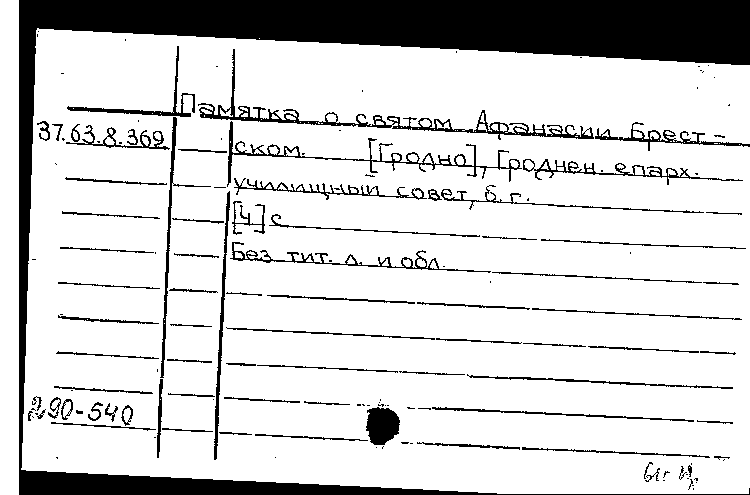 Памятка о святом Афанасии Брест-
37.63.8.369
ском. [Гродно], Гроднен. епарх.
училищный совет, б. г.
[4] с
Без тит. л. и обл.
290-540